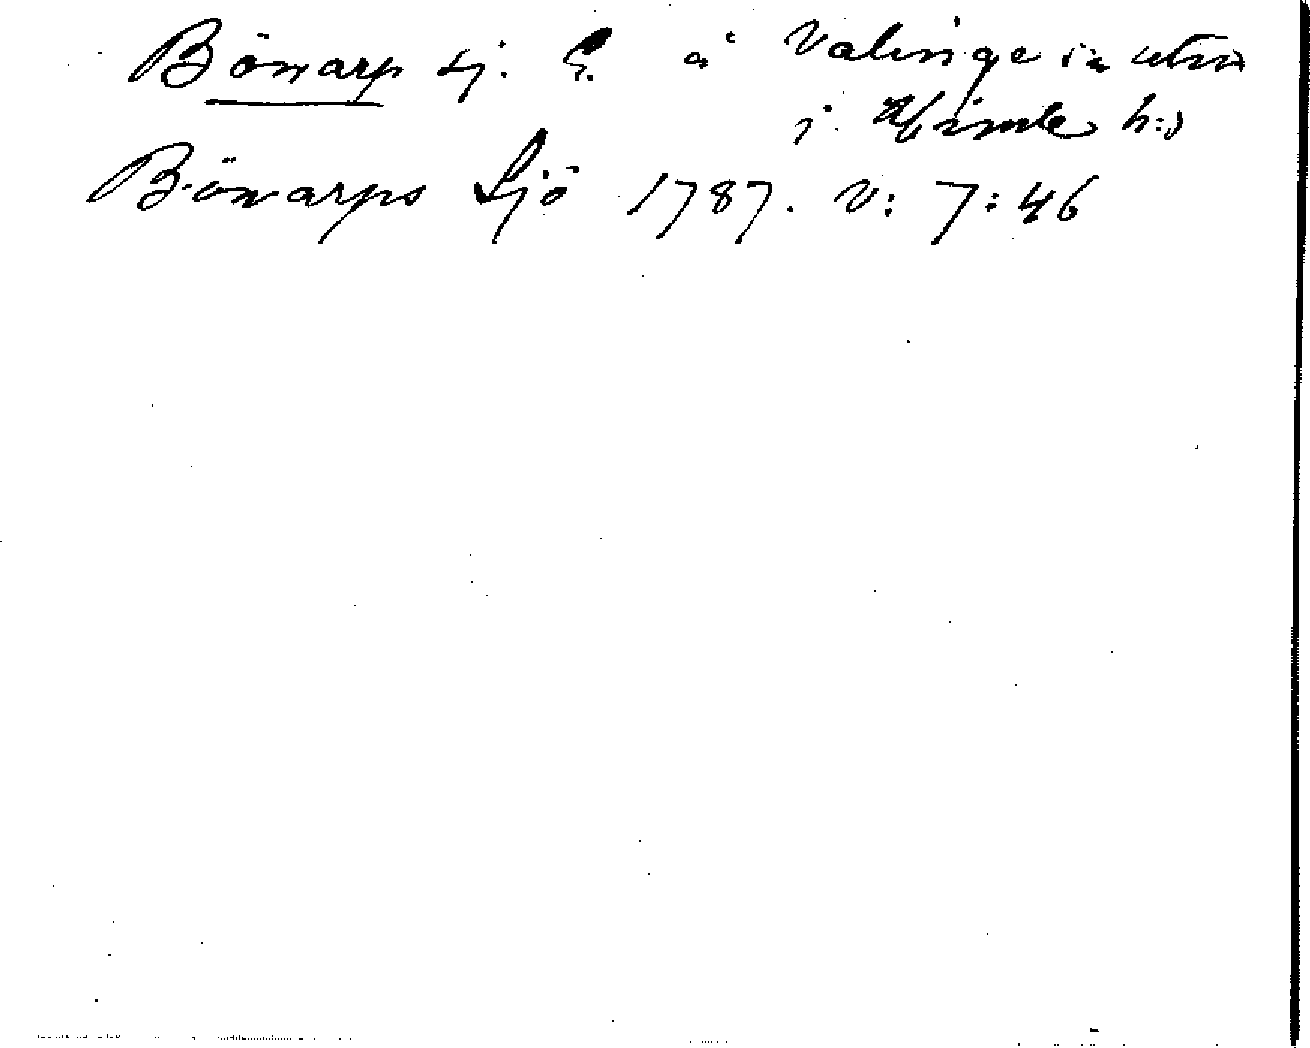 Bönarp sj. å Valinge in utm
i Himle h:d
Bönarps Sjö 1787. V: 7:46